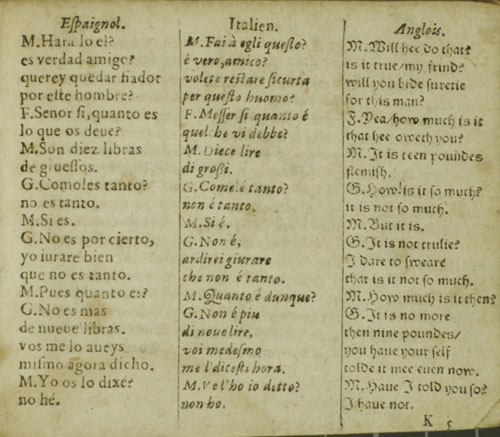 Eſpaignol.
M.Hara lo el?
es verdad amigo?
querey quedar fiador
por eſte hombre?
F.Senor ſi, quanto es
lo que os deue?
M.Son diez libras
de grueſſos.
G.Como!es tanto?
no es tanto.
M.Si es.
G.No es por cierto,
yo iurare bien
que no es tanto.
M.Pues quanto es?
G.No es mas
de nueue libras.
vos me lo aueys
miſmo agora dicho.
M.Yo os lo dixe?
no hé.
Italien.
M.Fai à egli queſto?
é vero, amico?
volete reſtare ſicurta
per queſto huomo?
F.Meſſer ſi quanto é
quel he vi debbe?
M.Diece lire
di groſſi.
G.Come!é tanto?
non é tanto.
M.Si é.
G.Non é,
ardirei giurare
che non é tanto.
M.Quanto é dunque?
G.Non é piu
di noue lire,
voi medeſmo
me l'diceſti hora.
M.Ve l'ho io ditto?
non ho.
Anglois.
M.Will hee do that?
is it true/my frind?
will you bide ſuretie
for this man?
F.Yea/how much is it
that hee oweth you?
M.It is teen poundes
flemiſh.
G.How!is it ſo much?
it is not ſo much.
M.But it is.
G.It is not trulie?
I dare to ſweare
that is it not ſo much.
M.How much is it then?
G.It is no more
then nine poundes/
you haue your ſelf
tolde it mee euen now.
M.Haue I told you ſo?
I haue not.
K 5